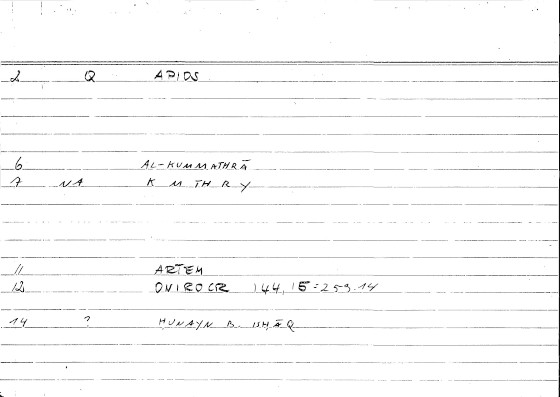 2 Q APIOS
6 AL-KUMMATHRĀ
7 NA K M TH R Y
11 ARTEM
12 ONIROCR 144,15=259.14
14 ? ḤUNAYN B. ISḤĀQ